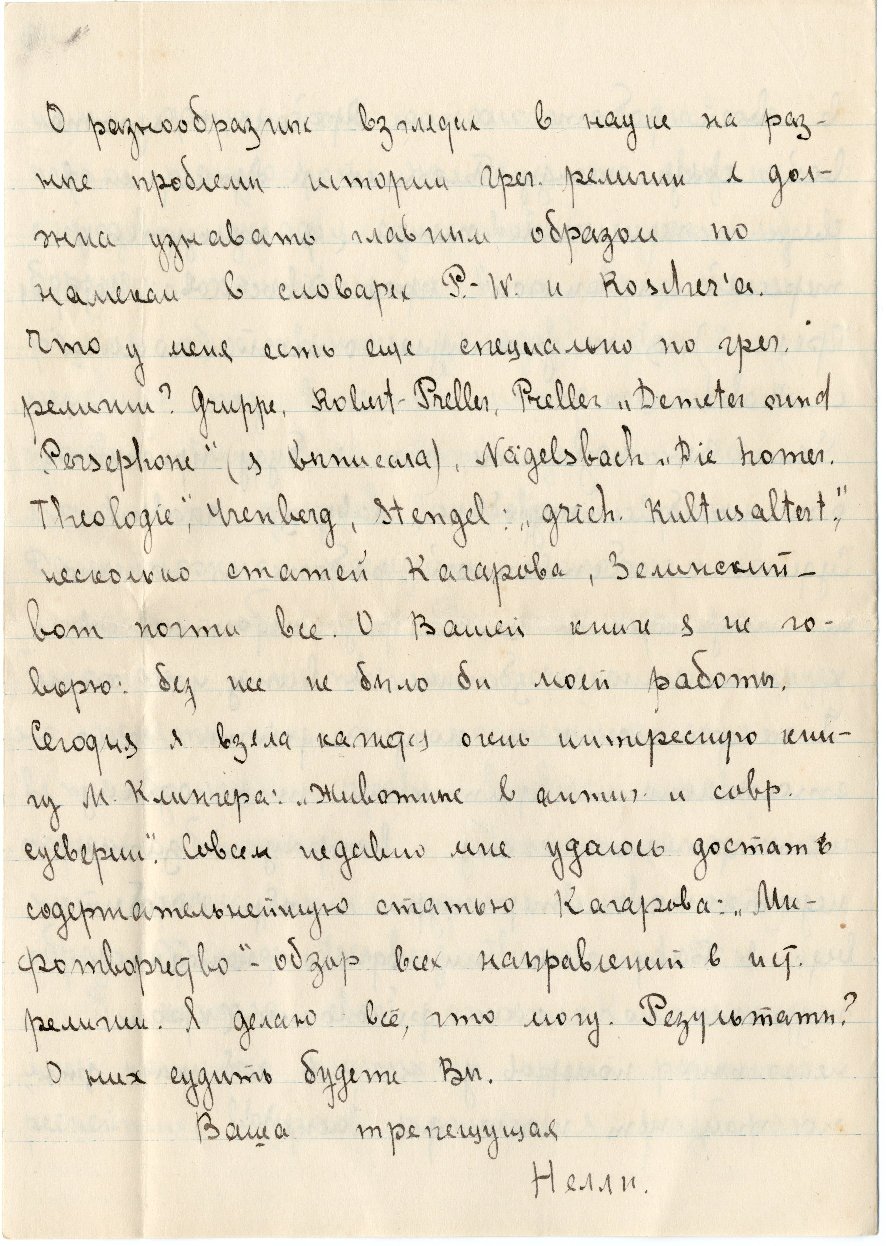 О разнообразных взглядах в науке на раз-
ные проблемы истории грег. религии я дол-
жна узнавать главным образом по
намекам в словарях P.-W. и Roscher'а.
Что у меня есть еще специально по грег.
религии? Gruppe, Robert-Preller, Preller „Demeter und
Persephone" (я выписала), Nägelsbach „Die homer.
Theologie", Stengel: „grich. Kultusaltert.",
несколько статей Кагарова, Зелинский –
вот почти все. О Вашей книге я не го-
ворю: без нее не было бы моей работы.
Сегодня я взяла кажется очень интересную кни-
гу М. Клингера: „Животные в антич и совр.
суеверии". Совсем недавно мне удалось достать
содержательнейшую статью Кагарова: „Ми-
фотворчество" - обзор всех направлений в ист.
религии. Я делаю всё, что могу. Результаты?
О них судить будете Вы.
Ваша трепещущая
Нелли.